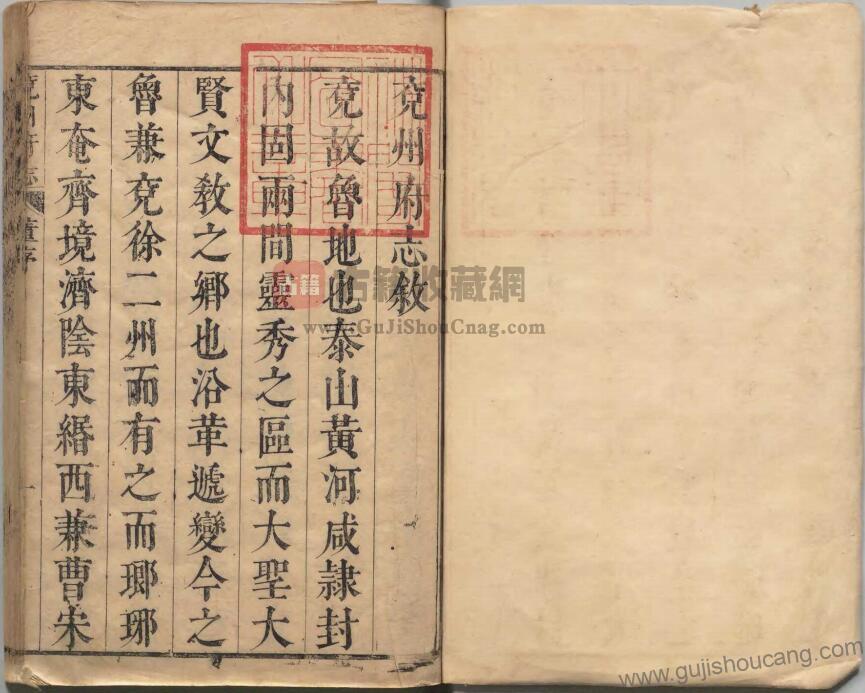 兗州府志敘
兗故魯地也泰山黃河咸隷封
內固兩間靈秀之區而大聖大
賢文教之鄉也沿革遞變今之
魯兼兗徐二州而有之而瑯琊
東奄齊境濟陰東緡西兼曹宋
兗州府志
董序
一
古籍
古籍收藏網
www.GuJiShouCnag.com
www.gujishoucang.com